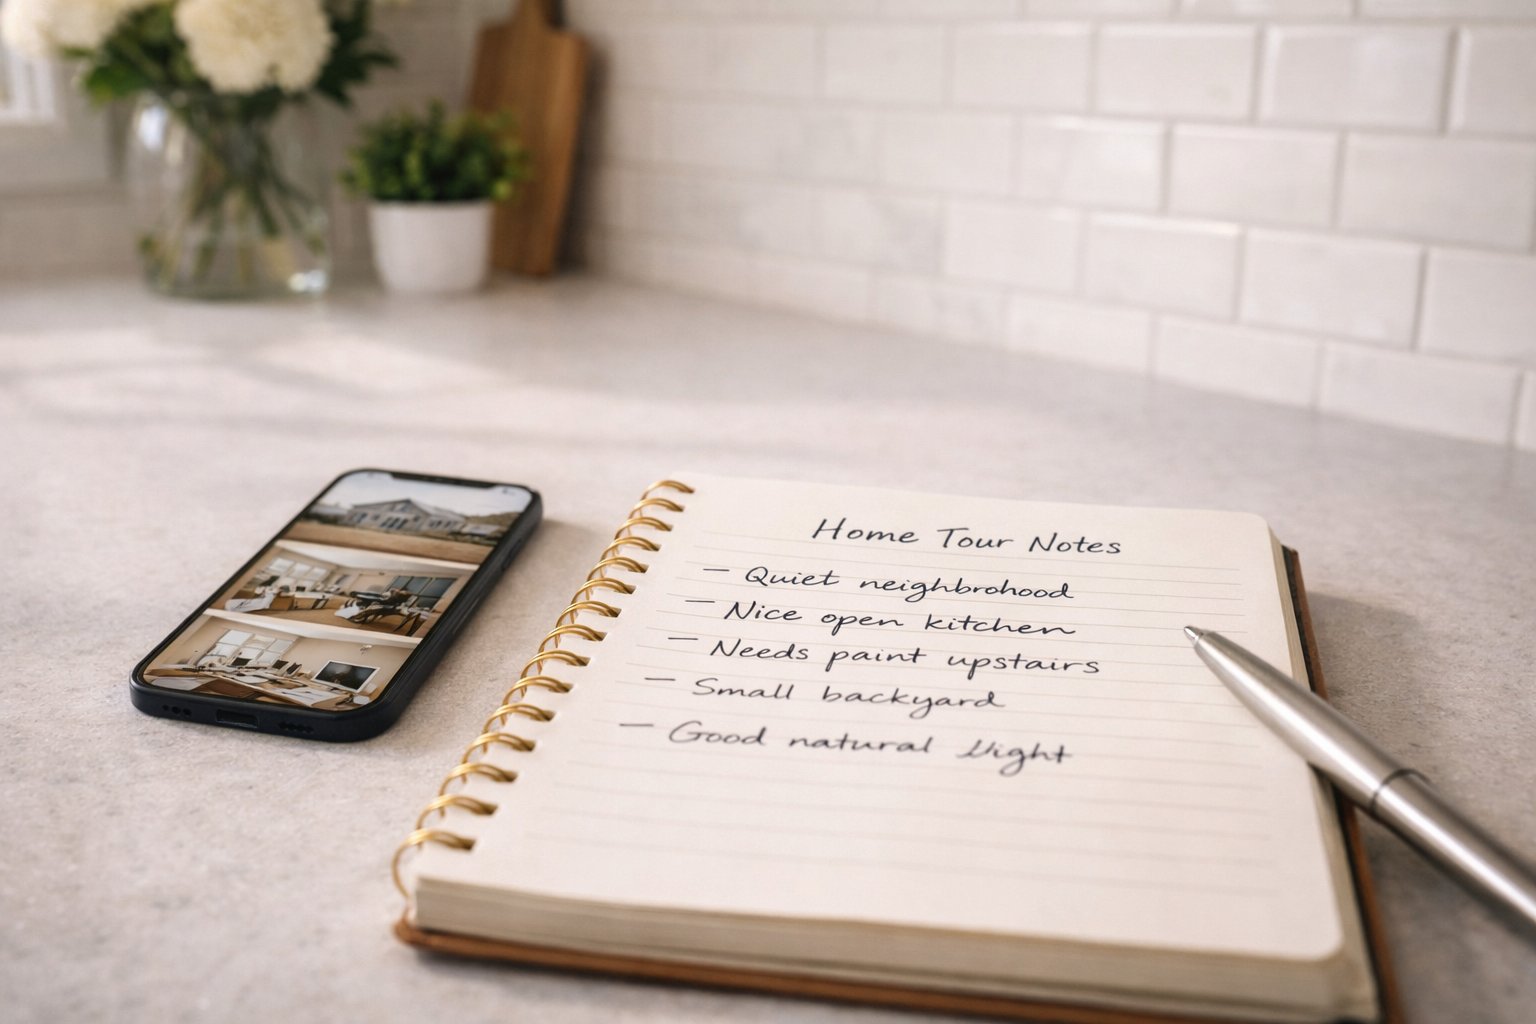 Home Tour Notes
– Quiet neighbrohood
– Nice open kitchen
– Needs paint upstairs
– Small backyard
– Good natural